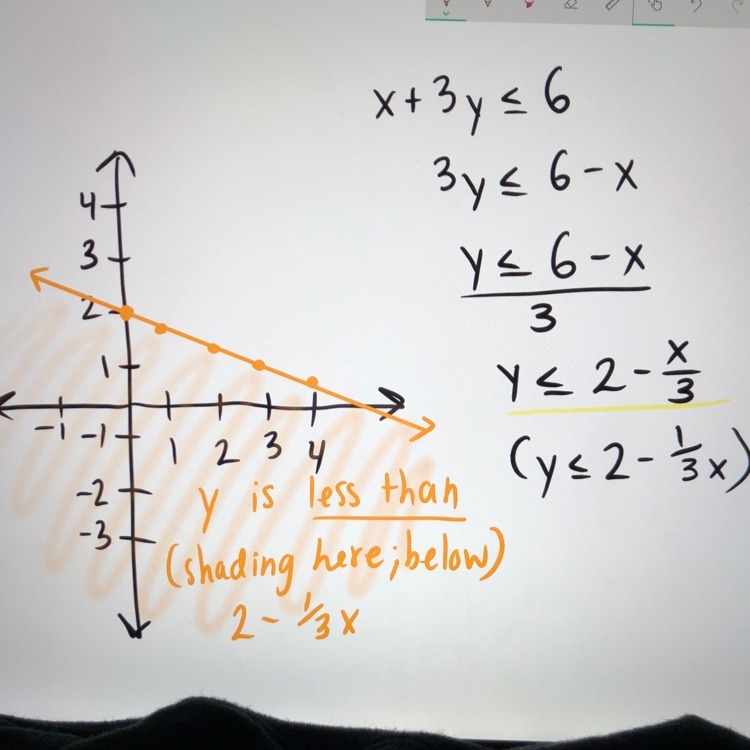 x+3y≤6
3y≤ 6-x
y≤ 6-x
3
y≤ 2-x/3
(y≤2-1/3x)
4
3
2
1
-1 -1 1 2 3 4
-2
-3
y is less than
(shading here; below)
2-1/3x